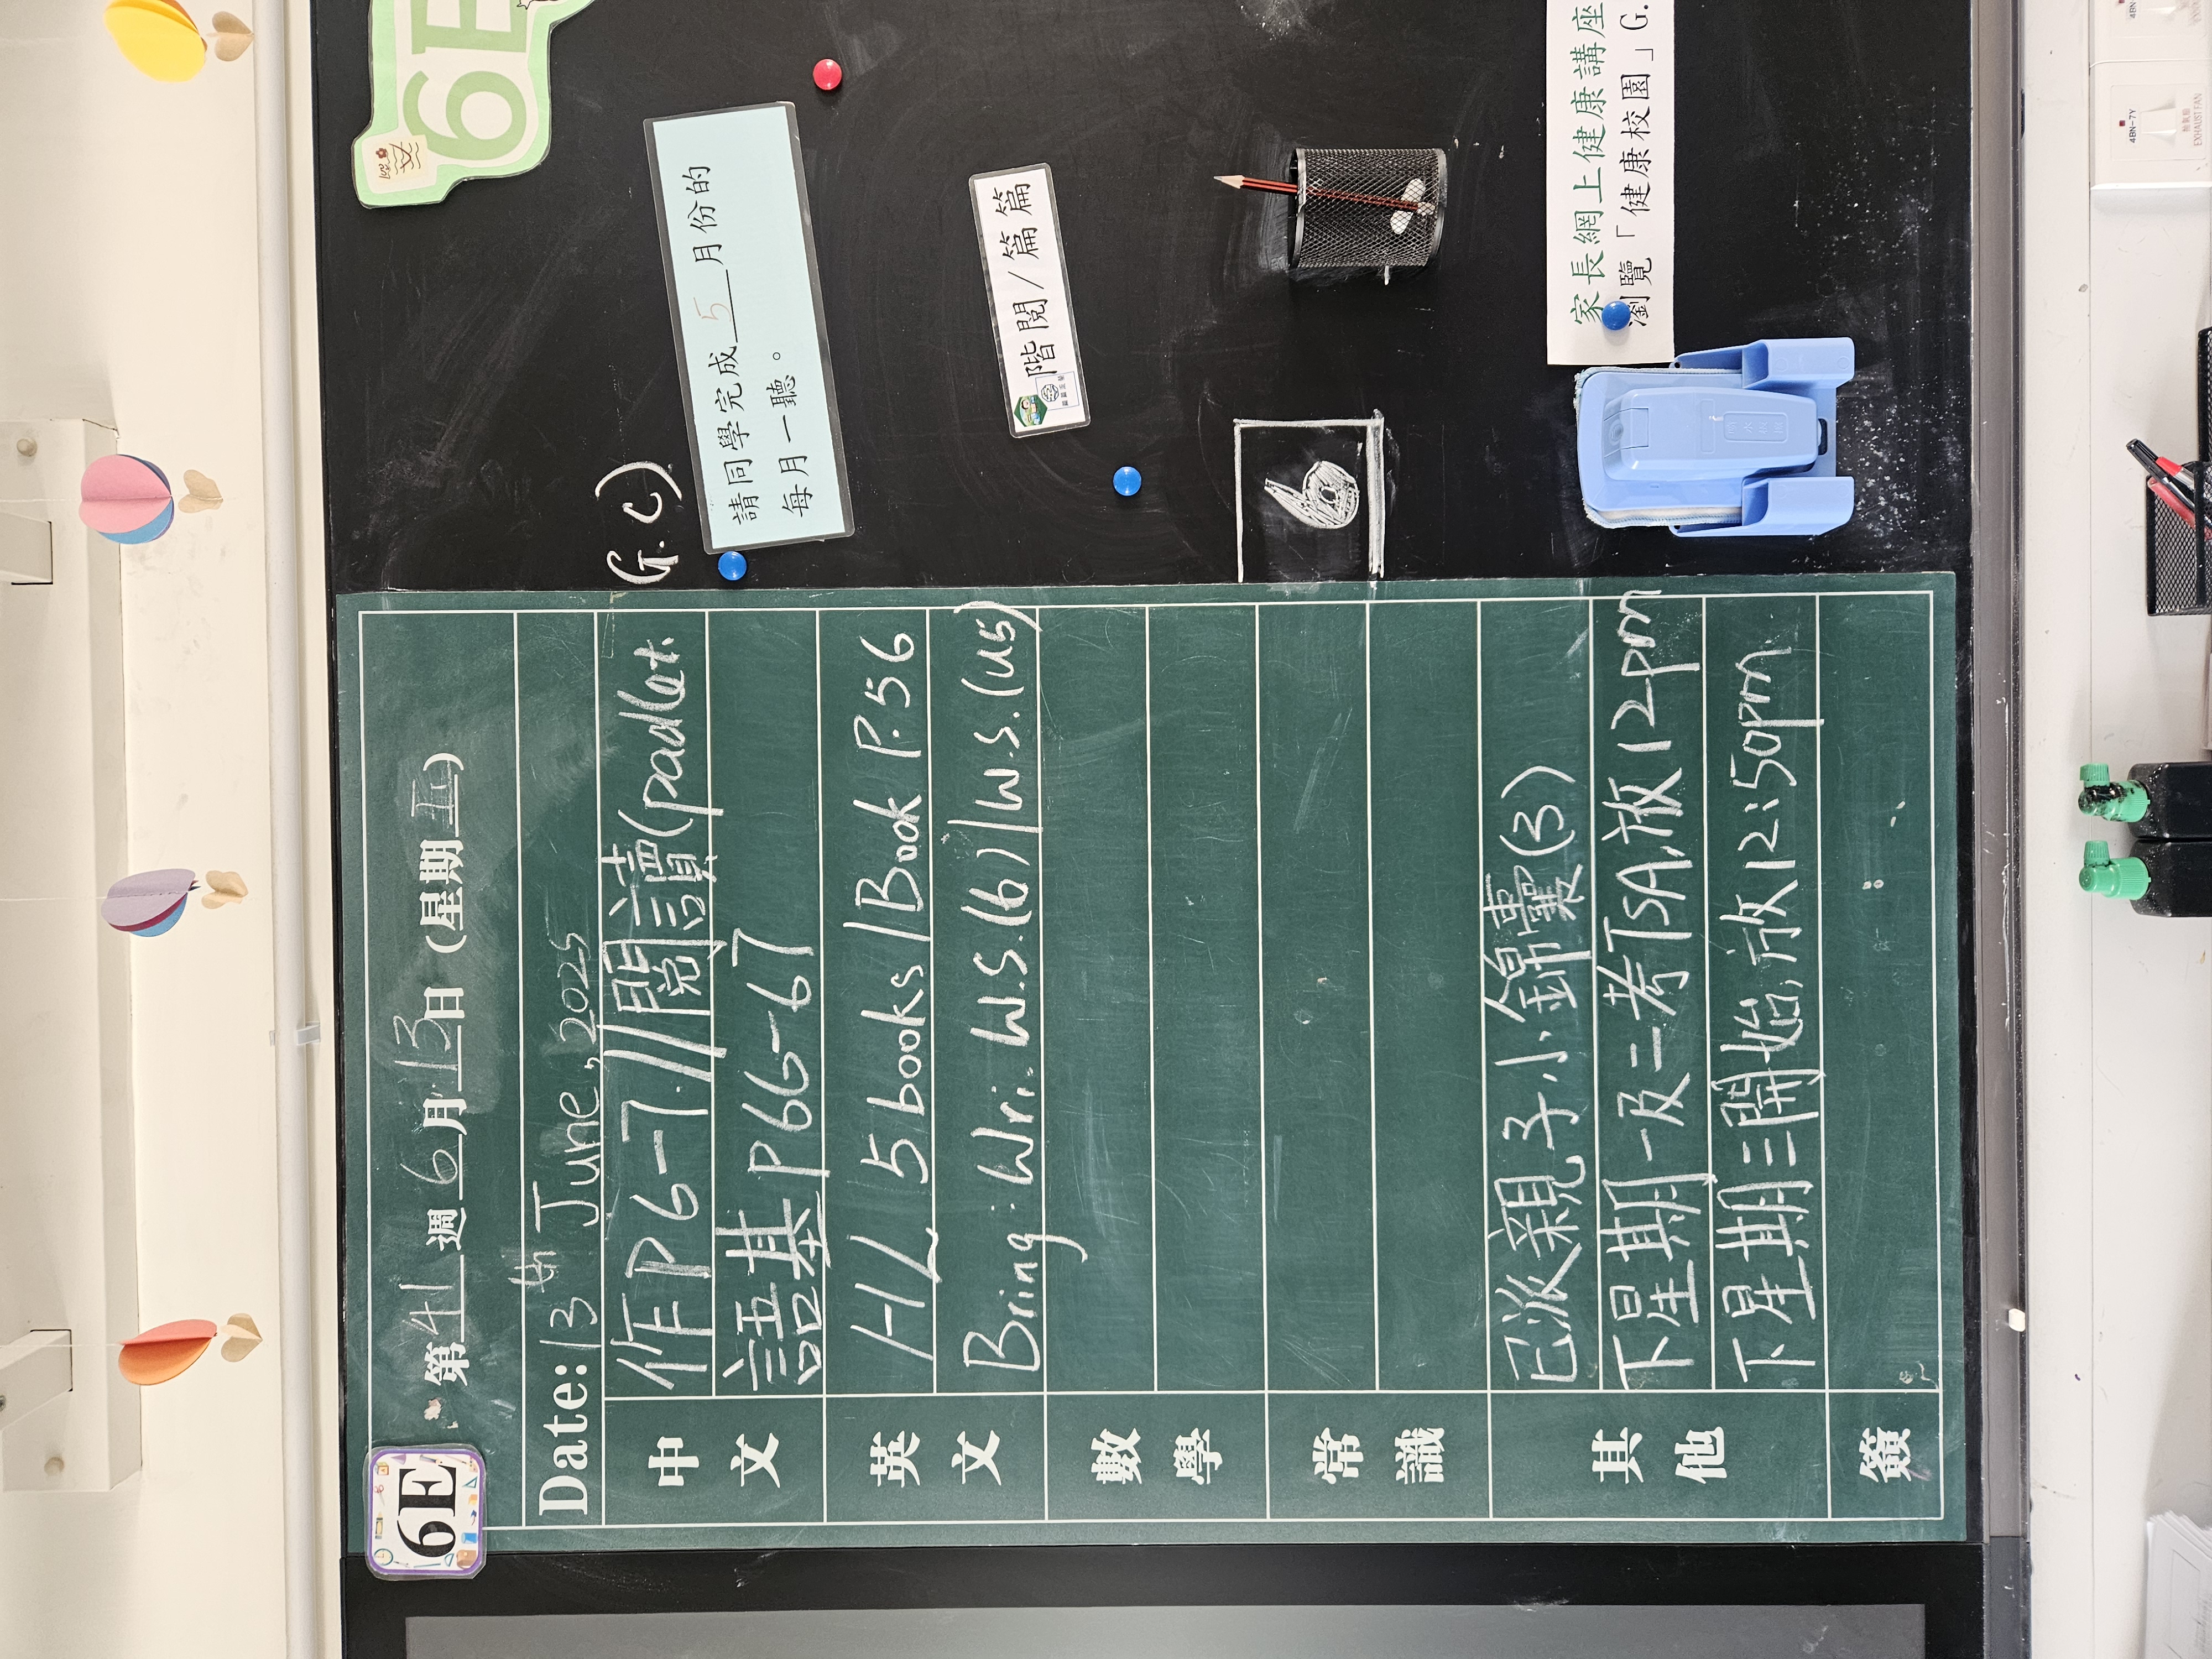 6E
第 41 週 6 月 13 日 (星期 五)
Date: 13th June, 2025
中文
作P6-7.//閱讀(padlet. G.C)
語基P66-67
英文
HL 5 books / Book P.56
Bring: Wri. W.S.(6) / W.S.(u5)
數學
常識
其他
已派親子小錦囊(3)
下星期一及二考TSA,放12pm
下星期三開始,放12:50pm
簽
6E
請同學完成 5 月份的
每月一聽。
階閱/篇篇
6
家長網上健康講座
瀏覽「健康校園」G.
4BN-7Y
EXHAUST FAN